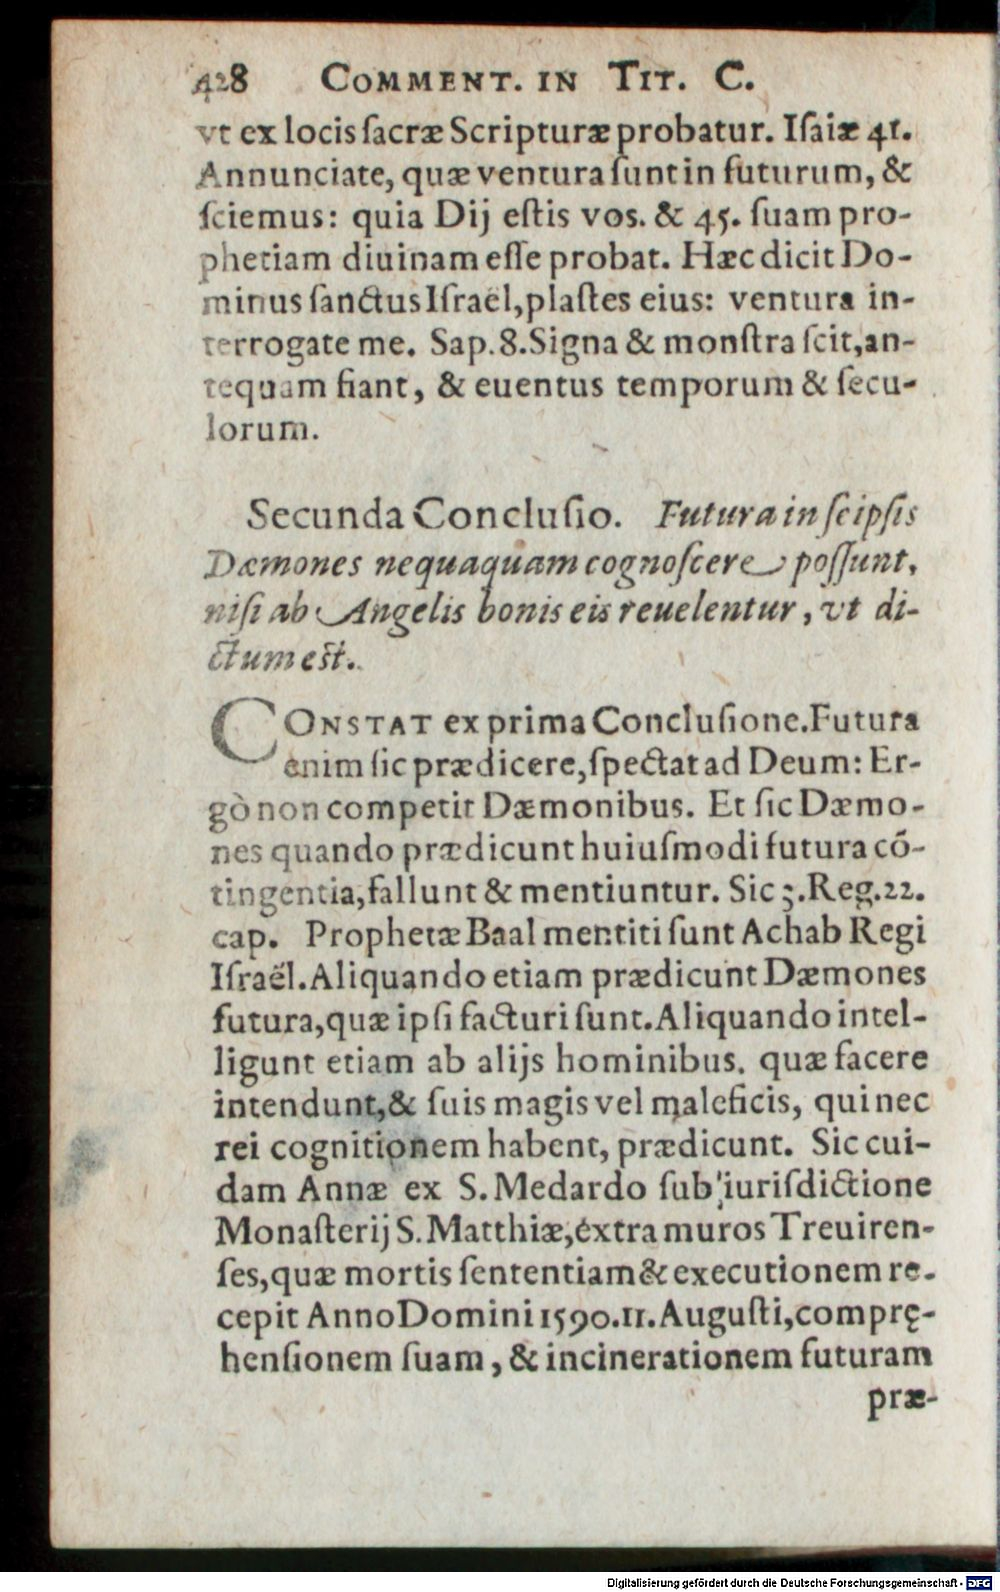 428 COMMENT. IN TIT. C.
vt ex locis ſacræ Scripturæ probatur. Iſaiæ 41.
Annunciate, quæ ventura ſunt in futurum, &
ſciemus: quia Dij eſtis vos. & 45. ſuam pro-
phetiam diuinam eſſe probat. Hæc dicit Do-
minus ſanctus Iſraël, plaſtes eius: ventura in-
terrogate me. Sap. 8. Signa & monſtra ſcit, an-
tequam fiant, & euentus temporum & ſecu-
lorum.
Secunda Concluſio. Futura in ſeipſis
Dæmones nequaquam cognoſcere poſſunt,
niſi ab Angelis bonis eis reuelentur, vt di-
ctum est.
CONSTAT ex prima Concluſione. Futura
enim ſic prædicere, ſpectat ad Deum: Er-
gò non competit Dæmonibus. Et ſic Dæmo-
nes quando prædicunt huiuſmodi futura cõ-
tingentia, fallunt & mentiuntur. Sic 3. Reg. 22.
cap. Prophetæ Baal mentiti ſunt Achab Regi
Iſraël. Aliquando etiam prædicunt Dæmones
futura, quæ ipſi facturi ſunt. Aliquando intel-
ligunt etiam ab alijs hominibus. quæ facere
intendunt, & ſuis magis vel maleficis, qui nec
rei cognitionem habent, prædicunt. Sic cui-
dam Annæ ex S. Medardo ſub iuriſdictione
Monaſterij S. Matthiæ, extra muros Treuiren-
ſes, quæ mortis ſententiam & executionem re-
cepit Anno Domini 1590. 11. Auguſti, comprę-
henſionem ſuam, & incinerationem futuram
præ-
Digitalisierung gefördert durch die Deutsche Forschungsgemeinschaft - DFG